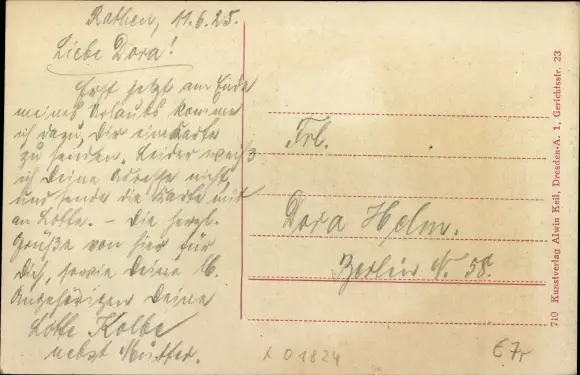 Rathen, 11.6.25.
Liebe Dora!
Erst jetzt am Ende
meines Urlaubs komme
ich dazu, Dir eine Karte
zu senden. Leider weiß
ich Deine Adresse nicht
und sende die Karte mit
an Lotte. – Die herzl.
Grüße von hier für
Dich, sowie Deine lb.
Angehörigen Deine
Lotte Kolbe
nebst Mutter.
Frl.
Dora Helm.
Berlin N. 58.
710 Kunstverlag Alwin Keil, Dresden-A. 1, Gerichtsstr. 23
x 01824